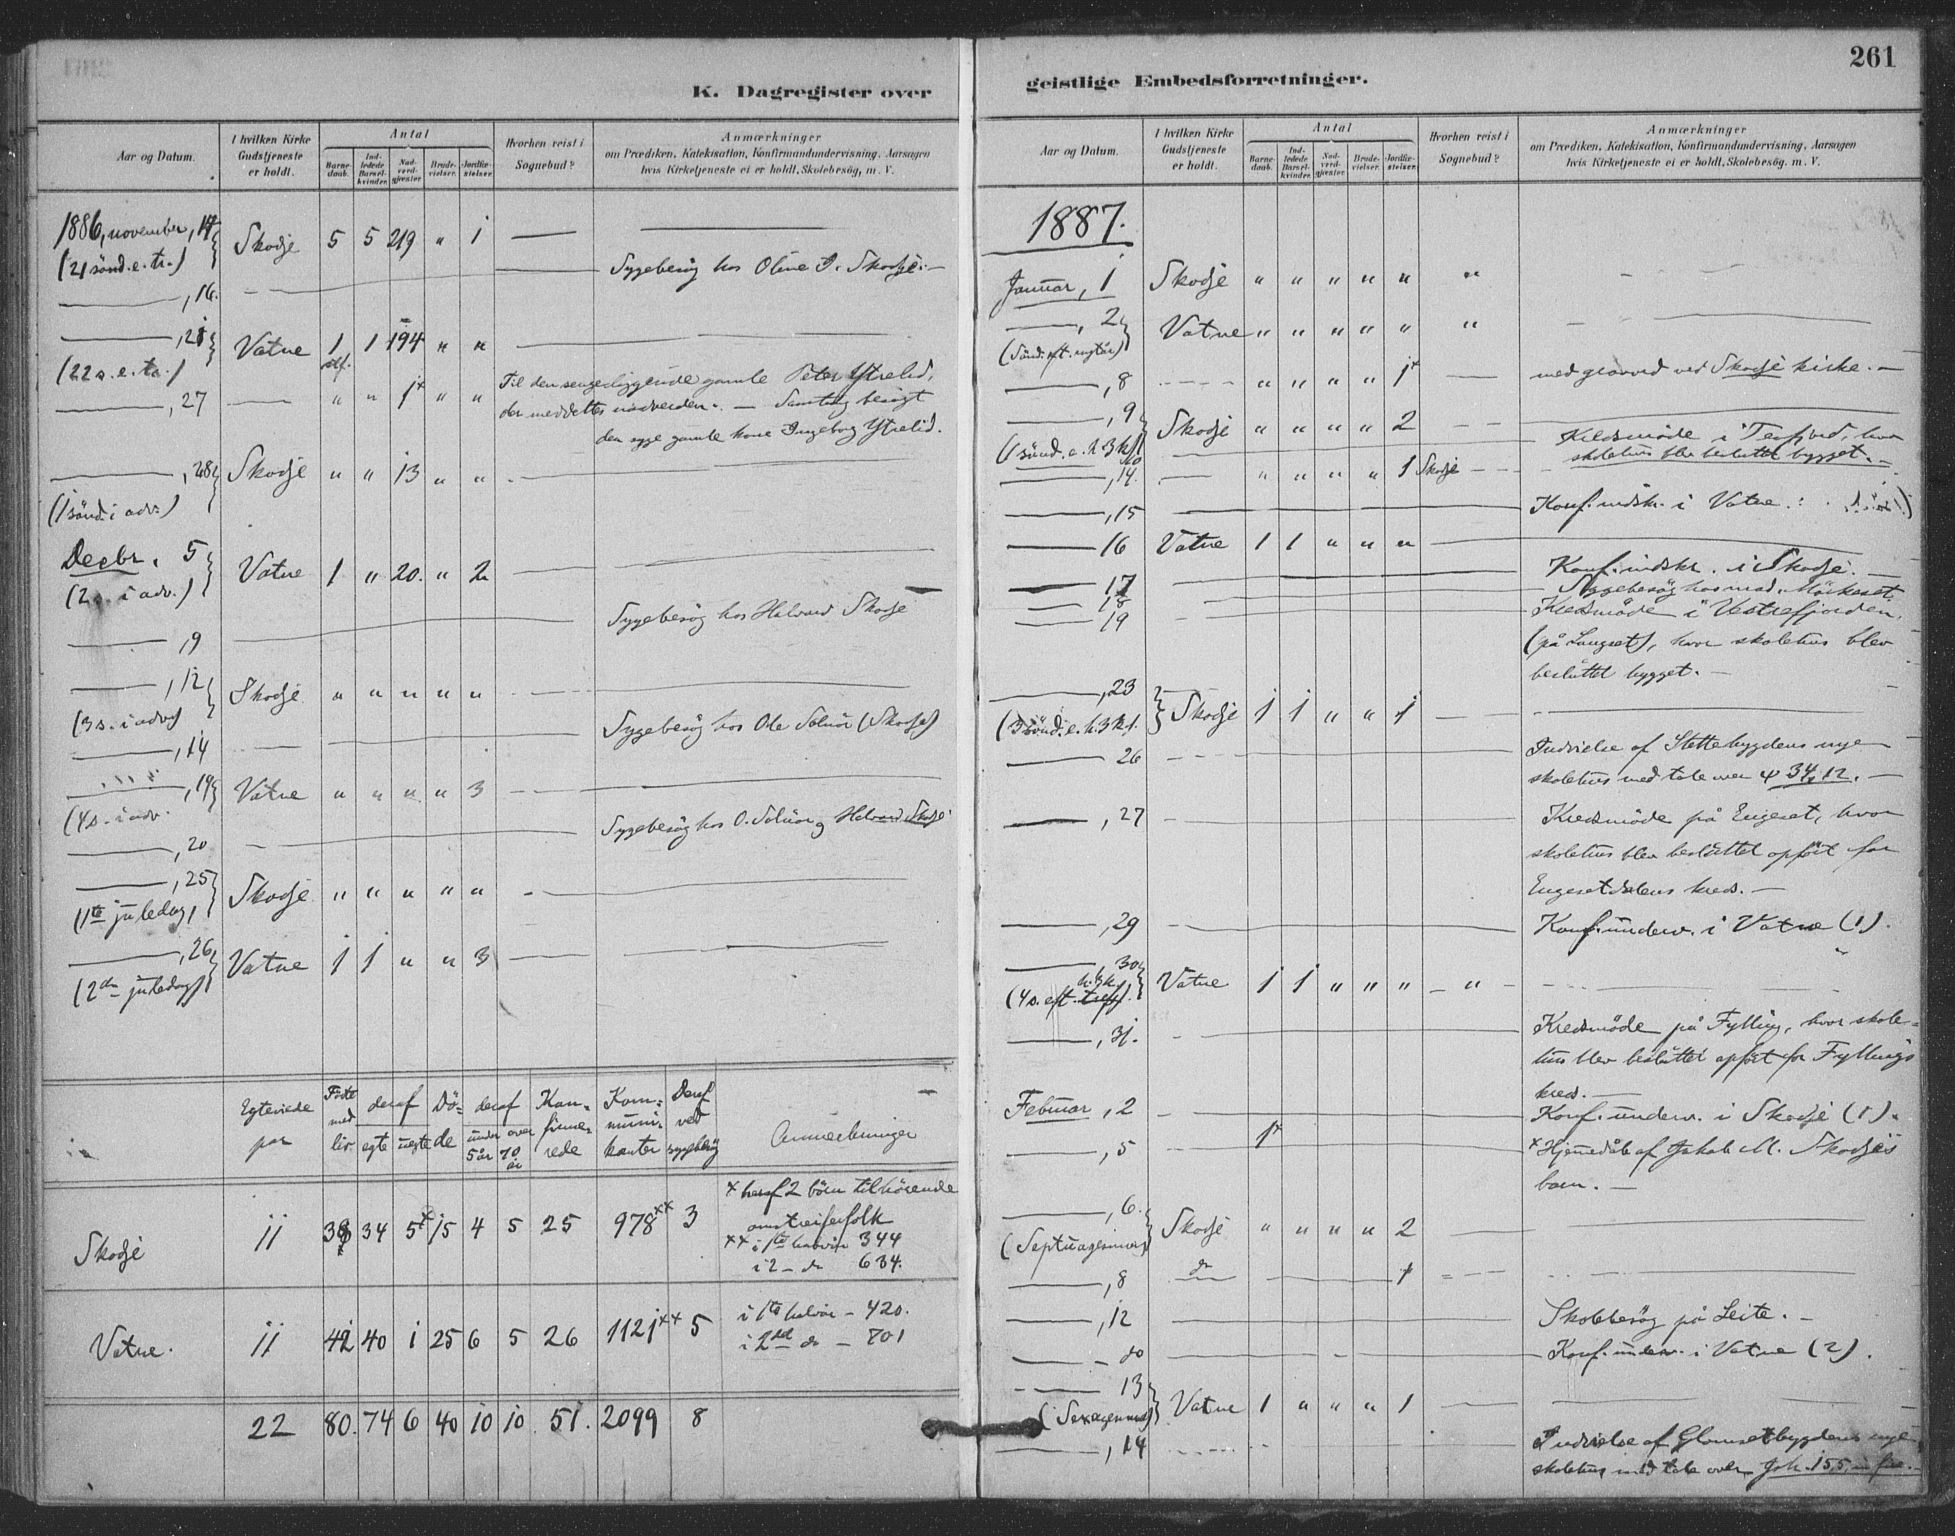 K. Dagregister over
Aar og Datum.
I hvilken Kirke Gudstjeneste er holdt.
Antal
Barnedaab.
Indledede Barselkvinder.
Nadverdgjæster
Brudevielser.
Jordfæstelser.
Hvorhen reist i Sognebud?
Anmærkninger
om Prædiken, Katekisation, Konfirmandundervisning, Aarsagen
hvis Kirketjeneste ei er holdt, Skolebesøg, m. V.
1886, november, 14 Skodje 5 5 219 " 1
(21 sønd. e. tr.)
——, 16. Sygebesøg hos Oline O. Skodje. —
——, 21 Vatne 1 1 194 " "
(22 s. e. tr.)
——, 27 " " 1x " " Til den sengeliggende gamle Peter Ytrelid,
der meddeltes nadverden. — Samtidig besøgt
den syge gamle kone Ingeborg Ytrelid.
——, 28 Skodje " " 13 " "
(1 sønd. i adv.)
Decbr. 5 Vatne 1 " 20. " 2
(2 s. i adv.)
——, 9 Sygebesøg hos Halvard Skodje
——, 12 Skodje " " " " "
(3 s. i adv.)
——, 14 Sygebesøg hos Ole Solnör (Skodje)
——, 19 Vatne " " " " 3
(4 s. i adv.
——, 20 Sygebesøg hos O. Solnör og Halvard Skodje.
——, 25 Skodje " " " " "
(1te juledag)
——, 26 Vatne 1 1 " " 3
(2den juledag)
Egteviede par
Fødte med liv.
deraf
egte
uegte
Döde
deraf
under 5 år
over 70 år
Konfirmerede
Kommunikanter
Deraf ved sygebesøg
Anmerkninger
Skodje 11 38 34 5x 15 4 5 25 978xx 3 x heraf 2 börn tilhörende
omstreiferfolk
xx i 1te halvår 344
i 2 – do 634.
Vatne. 11 41 40 1 25 6 5 26 1121xx 5 i 1te halvår – 420.
i 2det do – 701
22 80. 74 6 40 10 10 51. 2099 8
261
geistlige Embedsforretninger.
Aar og Datum.
I hvilken Kirke Gudstjeneste er holdt.
Antal
Barnedaab.
Indledede Barselkvinder.
Nadverdgjæster
Brudevielser.
Jordfæstelser.
Hvorhen reist i Sognebud?
Anmærkninger
om Prædiken, Katekisation, Konfirmandundervisning, Aarsagen
hvis Kirketjeneste ei er holdt, Skolebesøg. m. V.
1887.
Januar, 1 Skodje " " " " " "
——, 2 Vatne " " " " " "
(Sönd. eft. nytår)
——, 8 " " " " 1x med gravøl ved Skodje kirke. —
——, 9 Skodje " " " " 2
(1 sönd. e. h. 3 k.) Kredsmöde i Tenfjord, hvor
skolehus blev besluttet bygget. —
——, 14. " " " " 1 Skodje
——, 15 Konf. indskr. i Vatne.
—— 16 Vatne 1 1 " " "
—— 17 Konf. indskr. i Skodje. —
—— 18 Sygebesøg hos mad. Mörkeset.
—— 19 Kredsmöde i Vestrefjorden
(på Langset), hvor skolehus blev
besluttet bygget. —
——, 23 Skodje 1 1 " " 1
(3 sönd. e. h. 3 k.f.
—— 26 Indvielse af Stettebygdens nye
skolehus med tale over ψ 34, 12. —
——, 27 Kredsmöde på Engeset, hvor
skolehus blev besluttet opfört for
Engesetdalens kreds. —
——, 29 Konf. underv. i Vatne (1).
——, 30 Vatne 1 1 " " " "
(4 s. eft. h. 3 k.)
——, 31. Kredsmöde på Fylling, hvor skole-
hus blev besluttet opfört for Fyllings
kreds. —
Februar, 2 Konf. underv. i Skodje (1).
——, 5 1x x Hjemmedåb af Jakob M. Skodjes
barn. —
——, 6. Skodje " " " " 2
(Septuagesima)
——, 8 do 1
——, 12 Skolebesøg på Leite. —
—— do Konf. underv. i Vatne (2).
—— 13 Vatne 1 " " " 1
(Sexagesima)
——, 14 Indvielse af Glomsetbygdens nye
skolehus med tale over Joh. 15,5